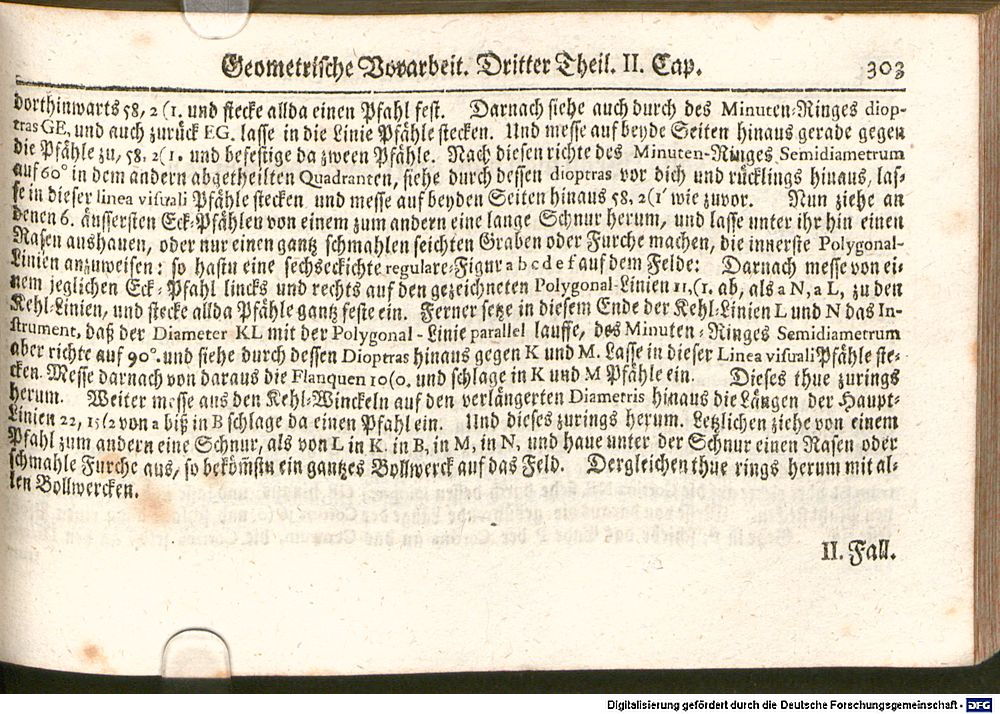 Geometrische Vorarbeit. Dritter Theil. II. Cap. 303
dorthinwarts 58, 2 (1. und stecke allda einen Pfahl fest. Darnach siehe auch durch des Minuten-Ringes diop-
tras GE, und auch zurück EG. lasse in die Linie Pfähle stecken. Und messe auf beyde Seiten hinaus gerade gegen
die Pfähle zu, 58. 2(1. und befestige da zween Pfähle. Nach diesen richte des Minuten-Ringes Semidiametrum
auf 60° in dem andern abgetheilten Quadranten, siehe durch dessen dioptras vor dich und rücklings hinaus, las-
se in dieser linea visurali Pfähle stecken und messe auf beyden Seiten hinaus 58, 2(1' wie zuvor. Nun ziehe an
denen 6. äussersten Eck-Pfählen von einem zum andern eine lange Schnur herum, und lasse unter ihr hin einen
Rasen aushauen, oder nur einen gantz schmahlen seichten Graben oder Furche machen, die innerste Polygonal-
Linien anzuweisen: so hastu eine sechseckichte regulare-Figur a b c d e f auf dem Felde: Darnach messe von ei-
nem jeglichen Eck-Pfahl lincks und rechts auf den gezeichneten Polygonal-Linien 11,(1. ab, als a N, a L, zu den
Kehl-Linien, und stecke allda Pfähle gantz feste ein. Ferner setze in diesem Ende der Kehl-Linien L und N das In-
strument, daß der Diameter KL mit der Polygonal-Linie parallel lauffe, des Minuten-Ringes Semidiametrum
aber richte auf 90°. und siehe durch dessen Dioptras hinaus gegen K und M. Lasse in dieser Linea visurali Pfähle ste-
cken. Messe darnach von daraus die Flanquen 10(0. und schlage in K und M Pfähle ein. Dieses thue zurings
herum. Weiter messe aus den Kehl-Winckeln auf den verlängerten Diametris hinaus die Längen der Haupt-
Linien 22, 15(2 von a biß in B schlage da einen Pfahl ein. Und dieses zurings herum. Letzlichen ziehe von einem
Pfahl zum andern eine Schnur, als von L in K. in B, in M, in N, und haue unter der Schnur einen Rasen oder
schmahle Furche aus, so bekömstu ein gantzes Bollwerck auf das Feld. Dergleichen thue rings herum mit al-
len Bollwercken.
II. Fall.
Digitalisierung gefördert durch die Deutsche Forschungsgemeinschaft - DFG